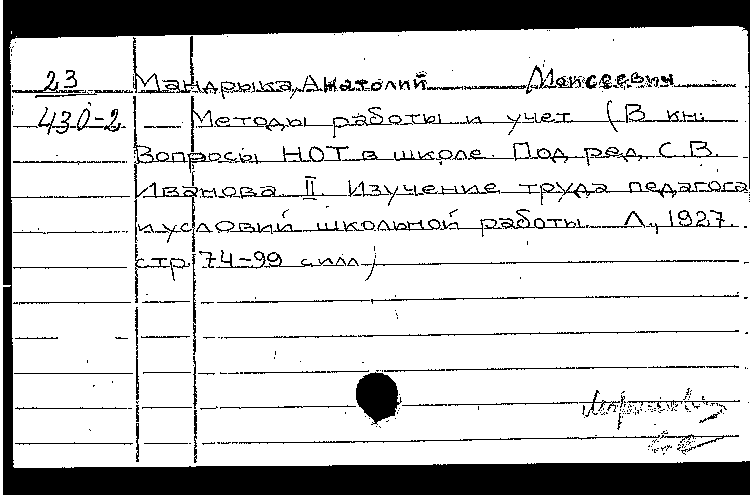 23 Мандрыка, Анатолий Моисеевич
430-2 Методы работы и учет (В кн:
Вопросы НОТ в школе. Под ред. С.В.
Иванова. II. Изучение труда педагога
и условий школьной работы Л., 1927.
стр 74-99 с илл)